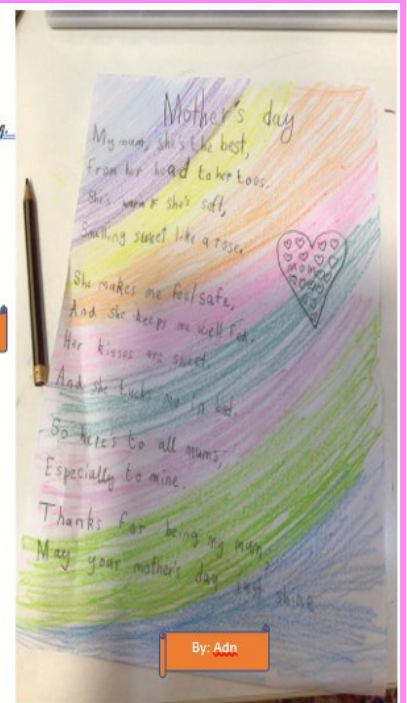 Mother's day
My mum, she's the best,
From her head to her toes.
She's warm & she's soft,
Smelling sweet like a rose.
She makes me feel safe,
And she keeps me well fed.
Her kisses are sweet.
And she tucks me in bed.
So here's to all mums,
Especially to mine.
Thanks for being my mum,
May your mother's day just shine
By: Adn